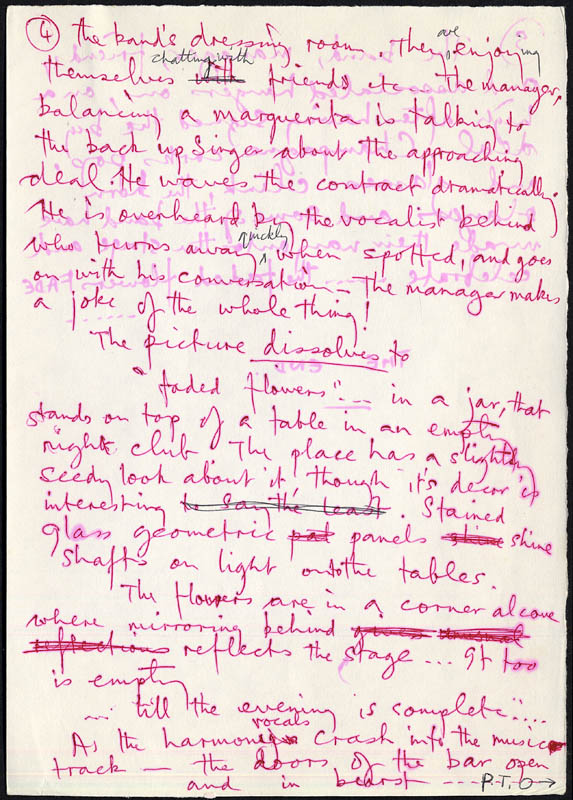 ④ the band's dressing room. They are enjoying
themselves chatting with friends etc — The manager,
balancing a marguerita is talking to
the back up singer about the approaching
deal. He waves the contract dramatically.
He is overheard by the vocalist behind
who turns away quickly when spotted, and goes
on with his conversation — The manager makes
a joke of the whole thing!
The picture dissolves to
"faded flowers"... in a jar, that
stands on top of a table in an empty
night club. The place has a slightly
seedy look about it, though it's decor is
interesting to say the least. Stained
glass geometric pat panels shine shine
shafts on light onto the tables.
The flowers are in a corner alcove
where mirroring behind
reflections reflects the stage ... It too
is empty
... till the evening is complete"....
As the harmony vocals crash into the music
track — the doors of the bar open
and in burst ---- P.T.O→